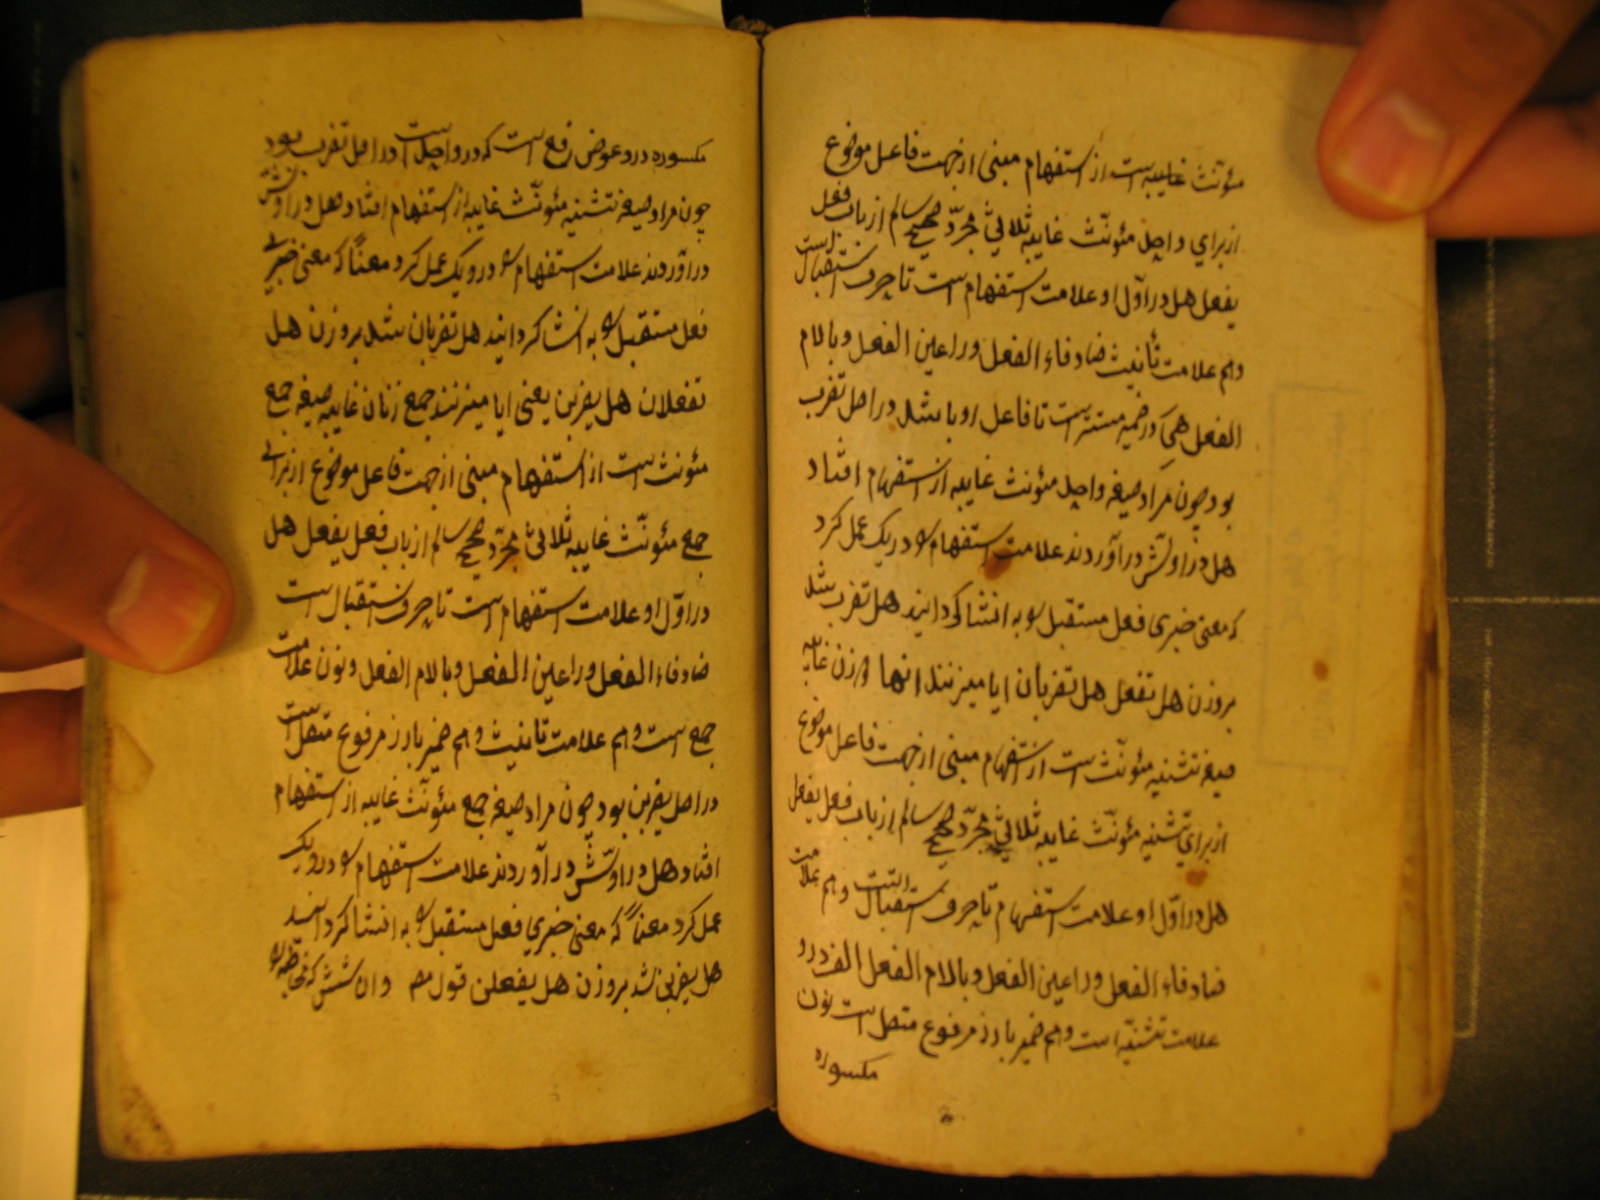 مؤنث غایبه است از استفهام مبنی از جهت فاعل موضوع
از برای واحد مؤنث غایبه ثلاثی مجرد صحیح سالم از باب فعل
یفعل هل در اول او علامت استفهام است تا حرف استقبال است
وهم علامت تأنیث ضاد فاء الفعل و را عین الفعل و با لام
الفعل هی در ضمیر مستتر است تا فاعل او با شد در اصل تضرب
بود چون مراد صیغه واحد مؤنث غایبه از استفهام افتاد
هل در اولش در آوردند علامت استفهام را در یک عمل کرد
که معنی خبری فعل مستقبل را به انشا کردانید هل تضرب شد
بر وزن هل تفعل هل تضربان ایا میزنند انها وزن غایبه
صیغه تثنیه مؤنث است از استفهام مبنی از جهت فاعل موضوع
از برای تثنیه مؤنث غایبه ثلاثی مجرد صحیح سالم از باب فعل یفعل
هل در اول او علامت استفهام تا حرف استقبال است وهم علامت
ضاد فاء الفعل و را عین الفعل و با لام الفعل الف درو
علامت تثنیه است وهم ضمیر بارز مرفوع متصل است نون
مکسوره
مکسوره درو عوض رفع است که در واحد است در اصل تضرب بود
چون مراد صیغه تثنیه مؤنث غایبه از استفهام افتاد هل در اولش
در آوردند علامت استفهام را درو یک عمل کرد معناً که معنی خبری
فعل مستقبل را به انشا کردانید هل تضربان شد بر وزن هل
تفعلان هل یضربن یعنی ایا میزنند جمع زنان غایبه صیغه جمع
مؤنث است از استفهام مبنی از جهت فاعل موضوع از برای
جمع مؤنث غایبه ثلاثی مجرد صحیح سالم از باب فعل یفعل هل
در اول او علامت استفهام است تا حرف استقبال است
ضاد فاء الفعل و را عین الفعل و با لام الفعل و نون علامت
جمع است وهم علامت تانیث وهم ضمیر بارز مرفوع متصل است
در اصل یضربن بود چون مراد صیغه جمع مؤنث غایبه از استفهام
افتاد هل در اولش در آوردند علامت استفهام را درو یک
عمل کرد معناً که معنی خبری فعل مستقبل را به انشا کردانید
هل یضربن شد بر وزن هل یفعلن قول مص وان شش که مخاطبه را